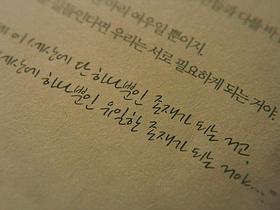 들과 다를 바
마리 여우일 뿐이지.
길들인다면 우리는 서로 필요하게 되는 거야.
이 세상에 단 하나뿐인 존재가 되는 거고.
세상에 하나뿐인 유일한 존재가 되는 거야...."